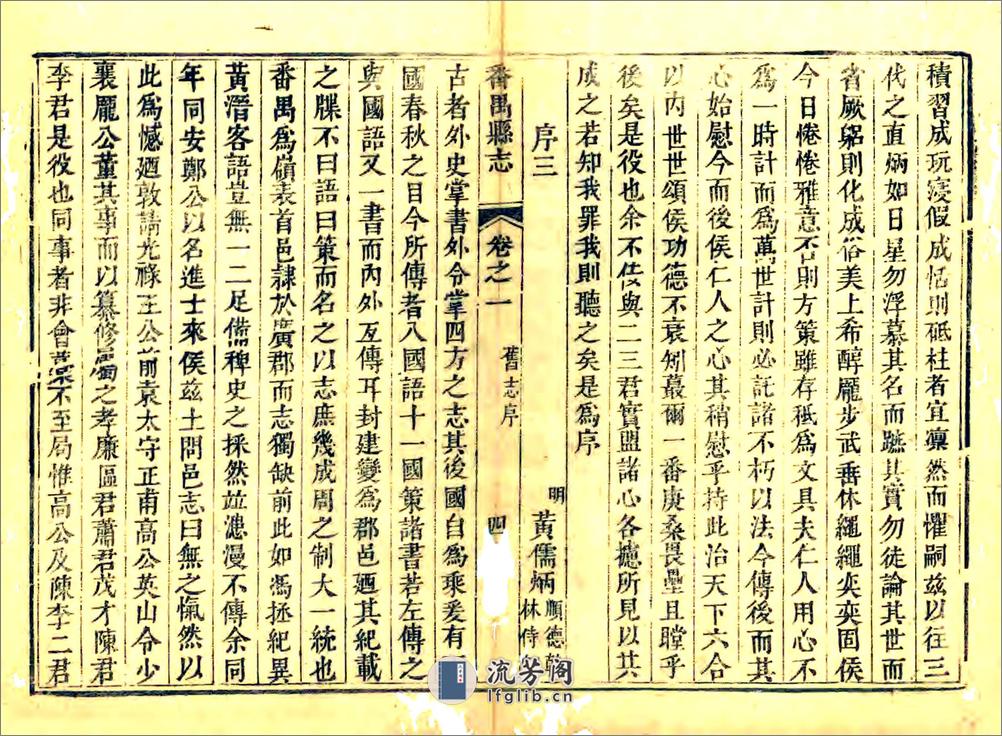 積習成玩寖假成恬則砥柱者宜凜然而懼嗣茲以往三
代之直炳如日星勿浮慕其名而蹠其實勿徒論其世而
省厥躬則化成俗美上希醇龐步武垂休繩繩奕奕固侯
今日惓惓雅意否則方策雖存秪為文具夫仁人用心不
為一時計而為萬世計則必託諸不朽以法今傳後而其
心始慰今而後侯仁人之心其稍慰乎持此治天下六合
以內世世頌侯功德不衰矧蕞爾一番庚桑畏壘且瞠乎
後矣是役也余不佞與二三君實盟諸心各攄所見以共
成之若知我罪我則聽之矣是為序
序三
明 黃儒炳 順德 林侍
番禺縣志 卷之一 舊志序 四
古者外史掌書外令掌四方之志其後國自為乘爰有
國春秋之目今所傳者八國語十一國策諸書若左傳之
與國語又一書而內外互傳耳封建變為郡邑廼其紀載
之牒不曰語曰策而名之以志庶幾成周之制大一統也
番禺為嶺表首邑隷於廣郡而志獨缺前此如馮拯紀異
黃潛客語豈無一二足備稗史之採然竝漶漫不傳余同
年同安鄭公以名進士來侯茲土問邑志曰無之愾然以
此為憾廼敦請光祿王公前袁太守正甫高公英山令少
襄龐公董其事而以纂修屬之孝廉區君蕭君茂才陳君
李君是役也同事者非會藁不至局惟高公及陳李二君
流芳閣
lfglib.cn